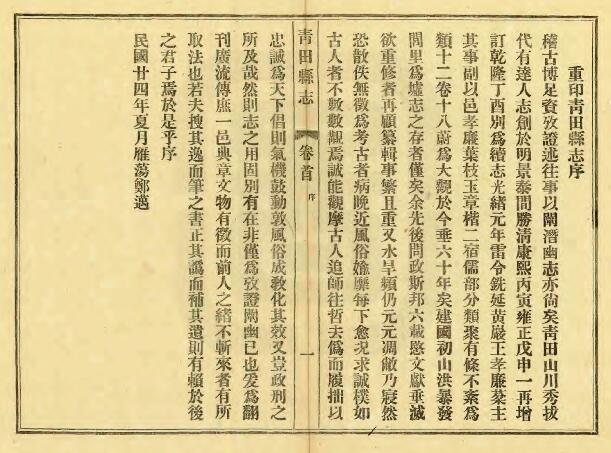 重印青田縣志序
稽古博足資攷證述往事以闡潛幽志亦尙矣青田山川秀拔
代有達人志創於明景泰間勝清康熙丙寅雍正戊申一再增
訂乾隆丁酉別爲續志光緒元年雷令銑延黃巖王孝廉棻主
其事副以邑孝廉葉枝玉章楷二宿儒部分類聚有條不紊爲
類十二卷十八蔚爲大觀於今垂六十年矣建國初山洪暴發
閭里爲墟志之存者僅矣余先後問政斯邦六載愍文獻垂滅
欲重修者再顧纂輯事繁且重又水旱頻仍元元凋敝乃寢然
恐散佚無徵爲考古者病晚近風俗媮靡每下愈况求誠樸如
古人者不數數覯焉誠能觀摩古人追師往哲去僞而履拙以
青田縣志 卷首 序 一
忠誠爲天下倡則氣機鼓動敦風俗成敎化其效又豈政刑之
所及哉然則志之用固別有在非僅爲攷證闡幽已也爰爲翻
刊廣流傳庶一邑典章文物有徵而前人之緒不斬來者有所
取法也若夫搜其逸而筆之書正其譌而補其遺則有賴於後
之君子焉於是乎序
民國廿四年夏月雁蕩鄭邁